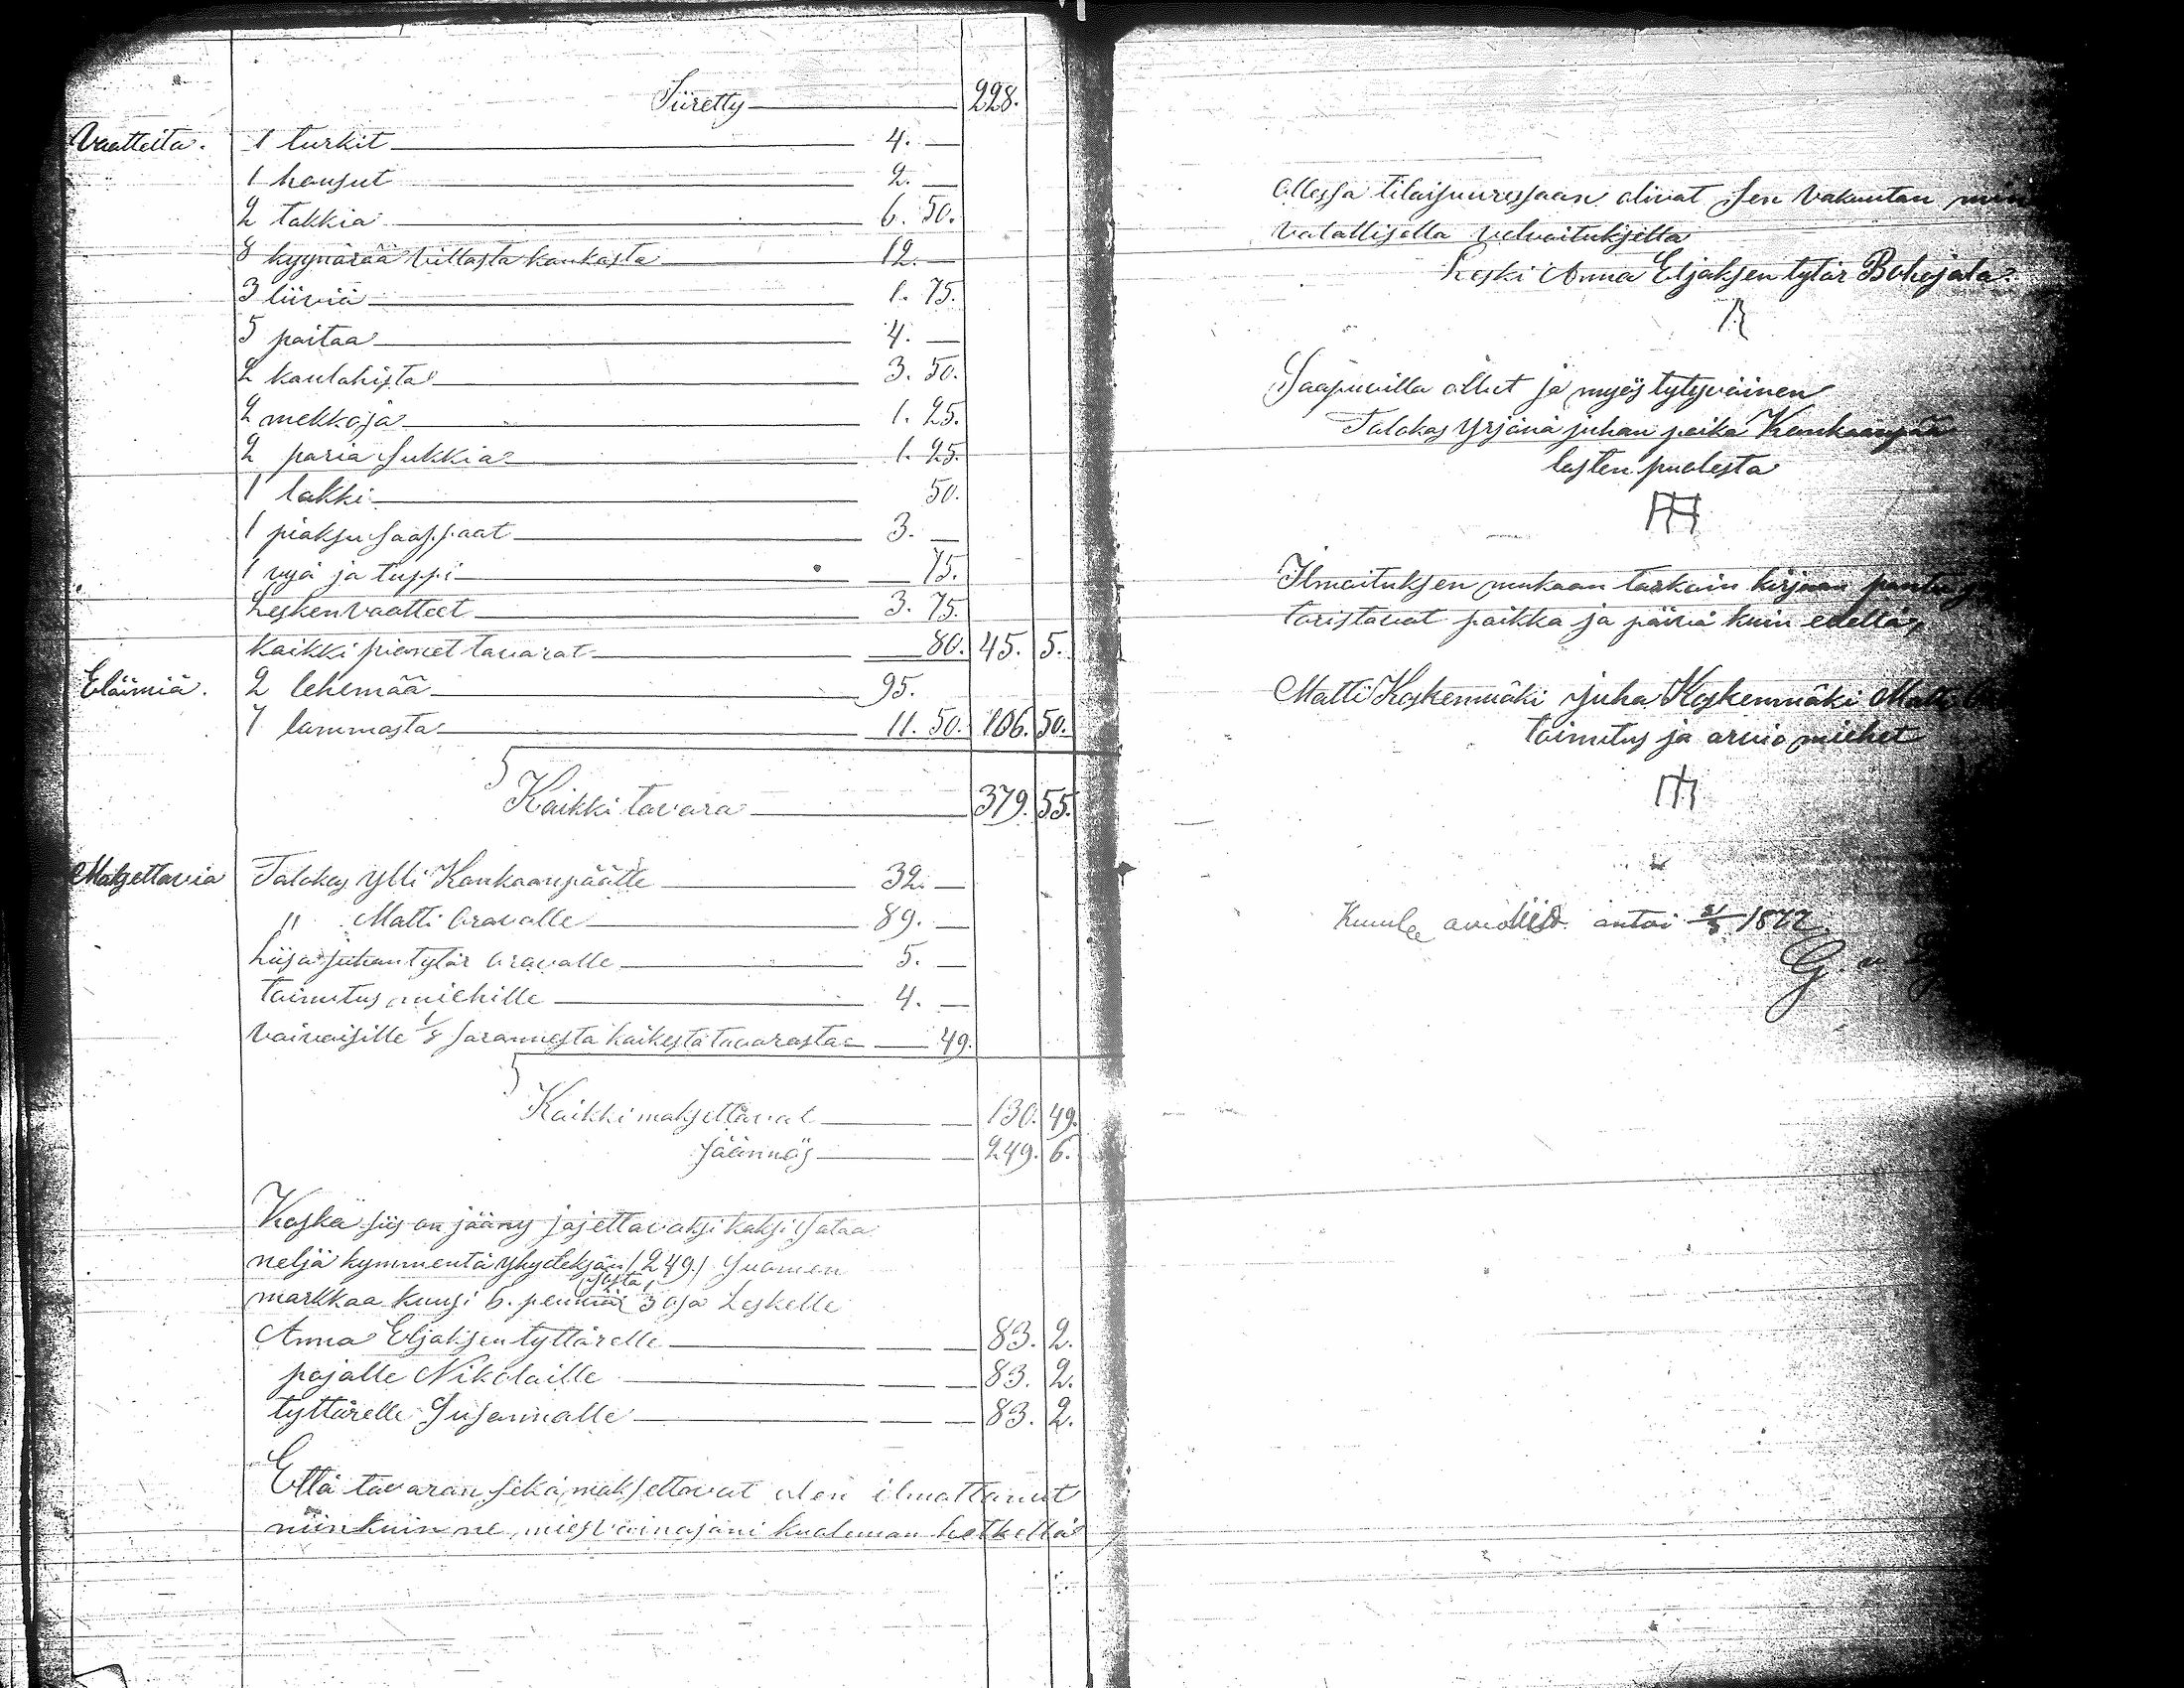 Siiretty 228.
Vaatteita. 1 turkit 4. —
1 housut 2. —
2 takkia 6. 50.
8 kyynärää villasta kankasta 12. —
3 liiviä 1. 75.
5 paitaa 4. —
2 kaulahista 3. 50.
2 mekkoja 1. 25.
2 paria sukkia 1. 25.
1 lakki 50.
1 piaksu saappaat 3. —
1 vyä ja tuppi 75.
Leskenvaatteet 3. 75.
kaikki pienet tavarat 80. 45. 5.
Eläimiä. 2 lehemää 95.
7 lammasta 11. 50. 106. 50.
Kaikki tavara 379. 55.
Maksettavia Talokas Ylli Kankaanpäälle 32. —
" Matti Oravalle 89. —
Liisa Juhantytär Oravalle 5. —
toimitus miehille 4. —
Vaivaisille 1/8 sarannesta kaikesta tavarasta 49.
Kaikki maksettavat 130. 49.
Jäännös 249. 6.
Koska siis on jääny jajettavaksi kaksi sataa
neljä kymmentä yhydeksän /249/ Suomen
markkaa kuusi 6. penniä josta 3 osa Leskelle
Anna Eljaksen tyttärelle 83. 2.
pojalle Nikolaille 83. 2.
tyttärelle Susannalle 83. 2.
Että tavaran sekä maksettavat olen ilmottanut
niinkuin ne miesvainajani kualeman hetkellä
ollessa tilaisuuressaan olivat sen vakuutan
valallisella velvoituksella
Leski Anna Eljaksen tytär Bohojala.
Saapuvilla ollut ja myös tytyväinen
Talokas Yrjänä juhan poika Kankaanpää
lasten puolesta
Ilmoituksen mukaan tarkoin kirjaan pantu
toristavat paikka ja päivä kuin edellä,
Matti Koskenmäki Juha Koskenmäki Matti
toimitus ja arvio miehet
antoi 1872
G.